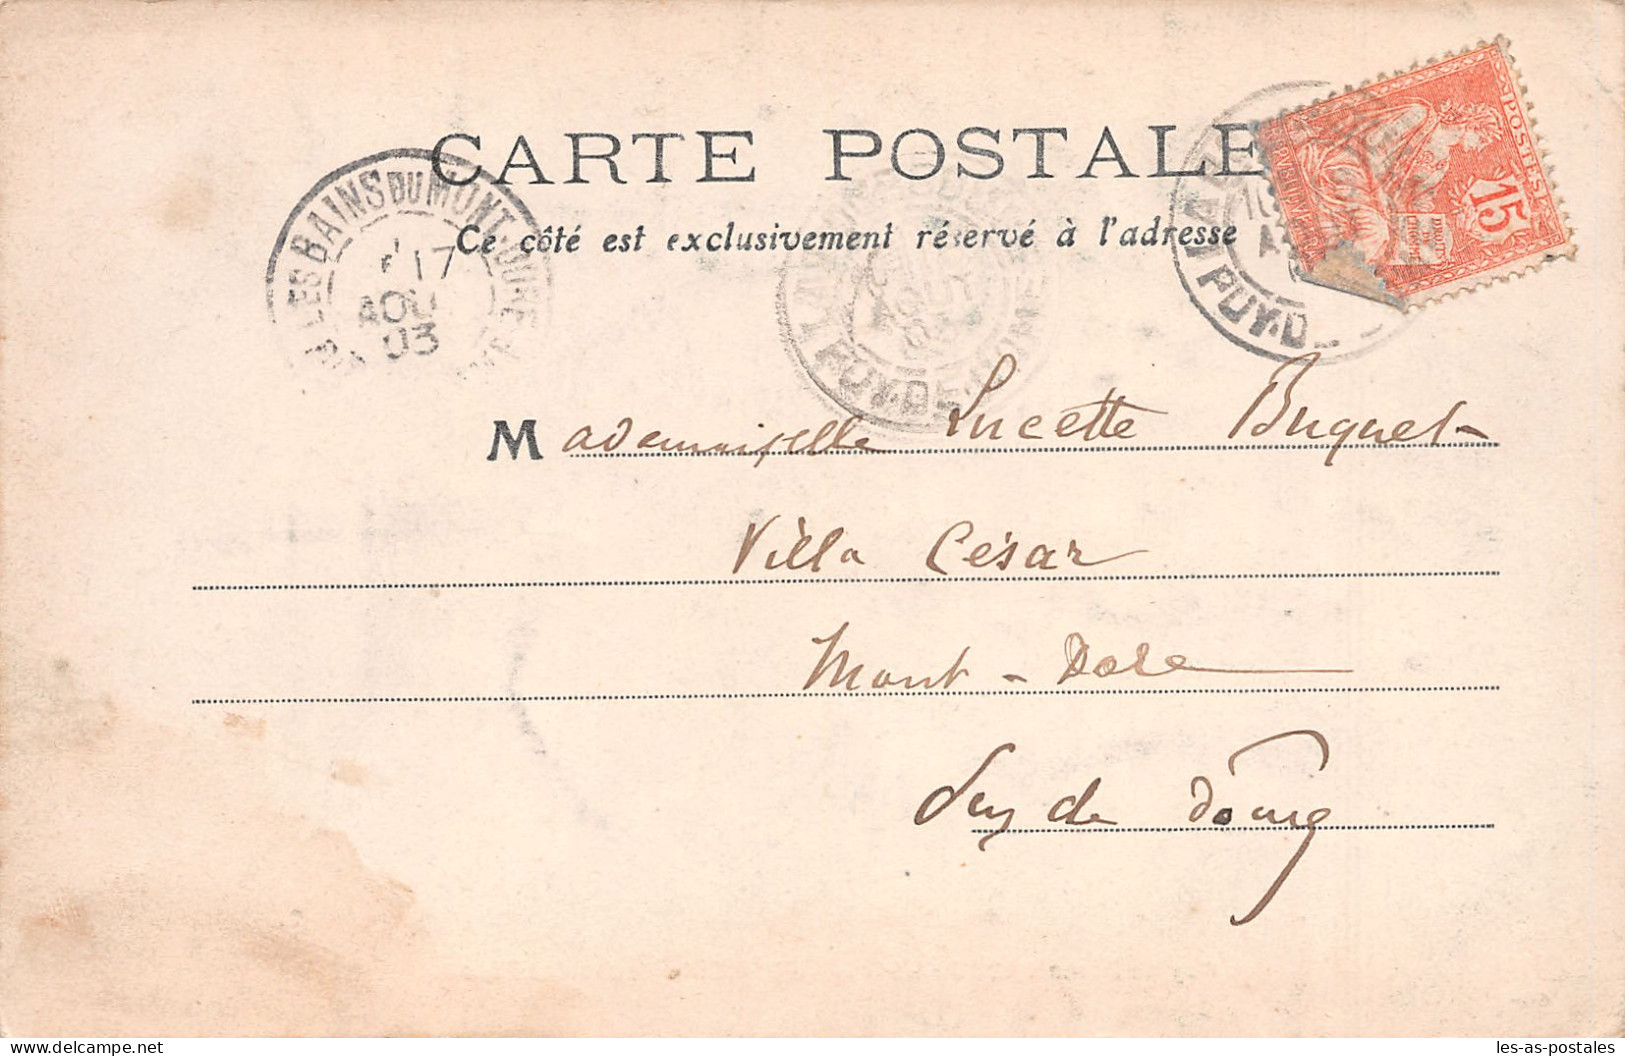 CARTE POSTALE
Ce côté est exclusivement réservé à l'adresse
LES BAINS DU MONT-DORE
17
AOU
03
PUY-DE-DOME
PUY-D
POSTES
15
Mademoiselle Lucette Buquet
Villa César
Mont-Dore
Puy de Dôme
www.delcampe.net
les-as-postales